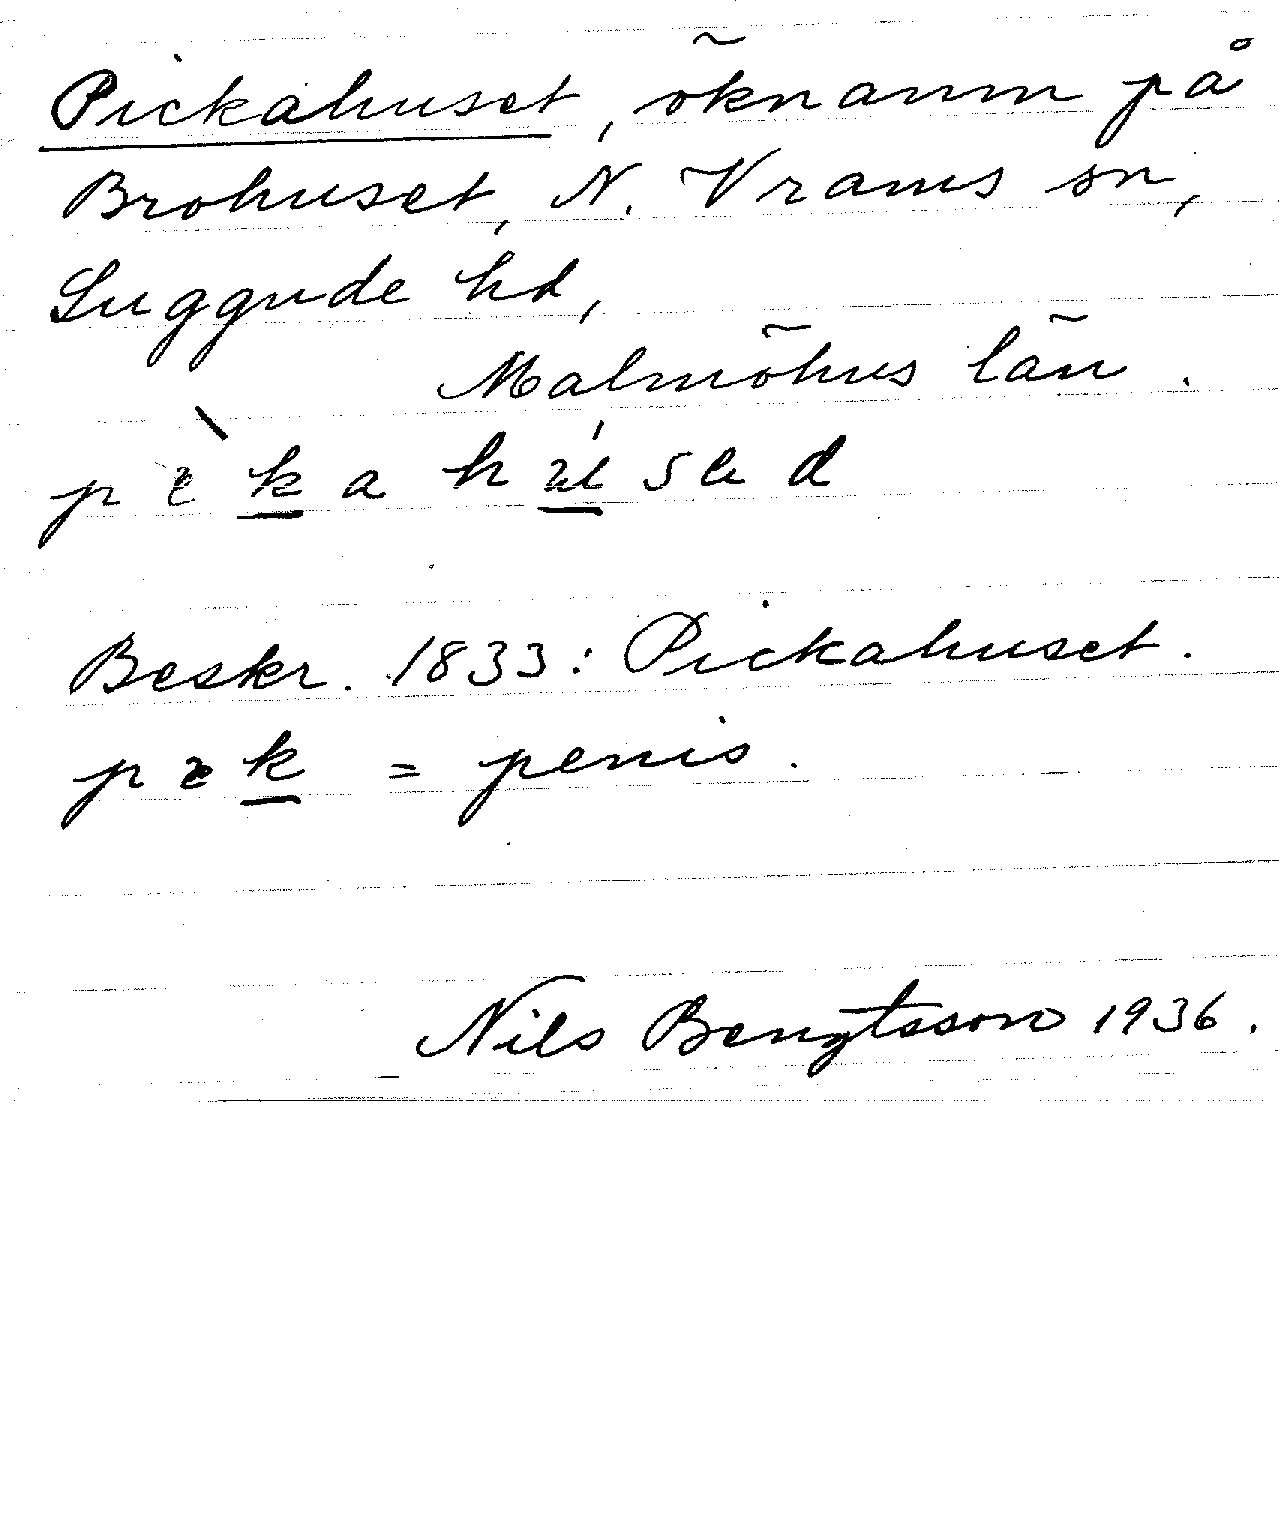 Pickahuset, öknamn på
Brohuset, N. Vrams sn,
Luggude hd,
Malmöhus län.
Beskr. 1833: Pickahuset.
= penis.
Nils Bengtsson 1936.